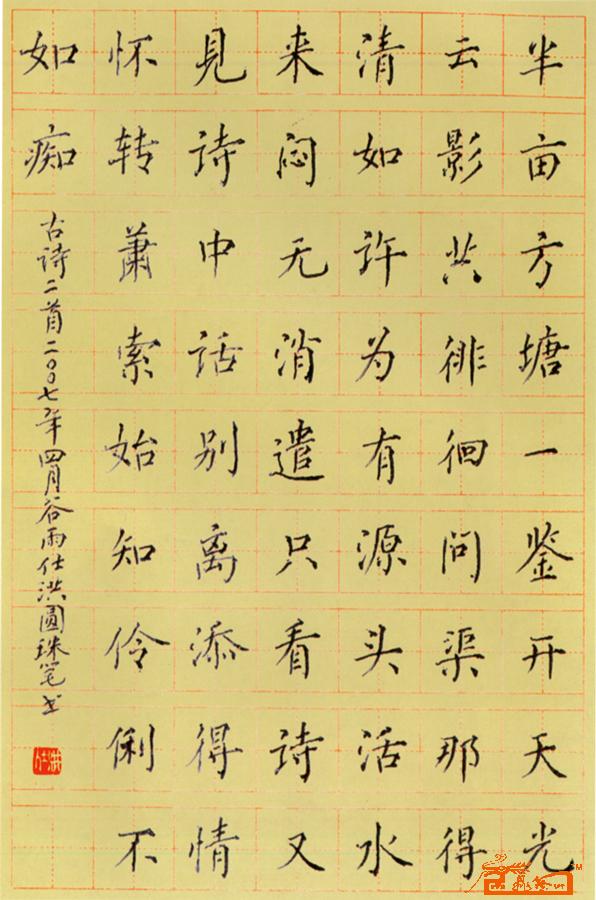 半亩方塘一鉴开天光
云影共徘徊问渠那得
清如许为有源头活水
来闷无消遣只看诗又
見诗中话别离添得情
怀转萧索始知伶俐不
如痴
古诗二首二〇〇七年四月谷雨仕洪圆珠笔书